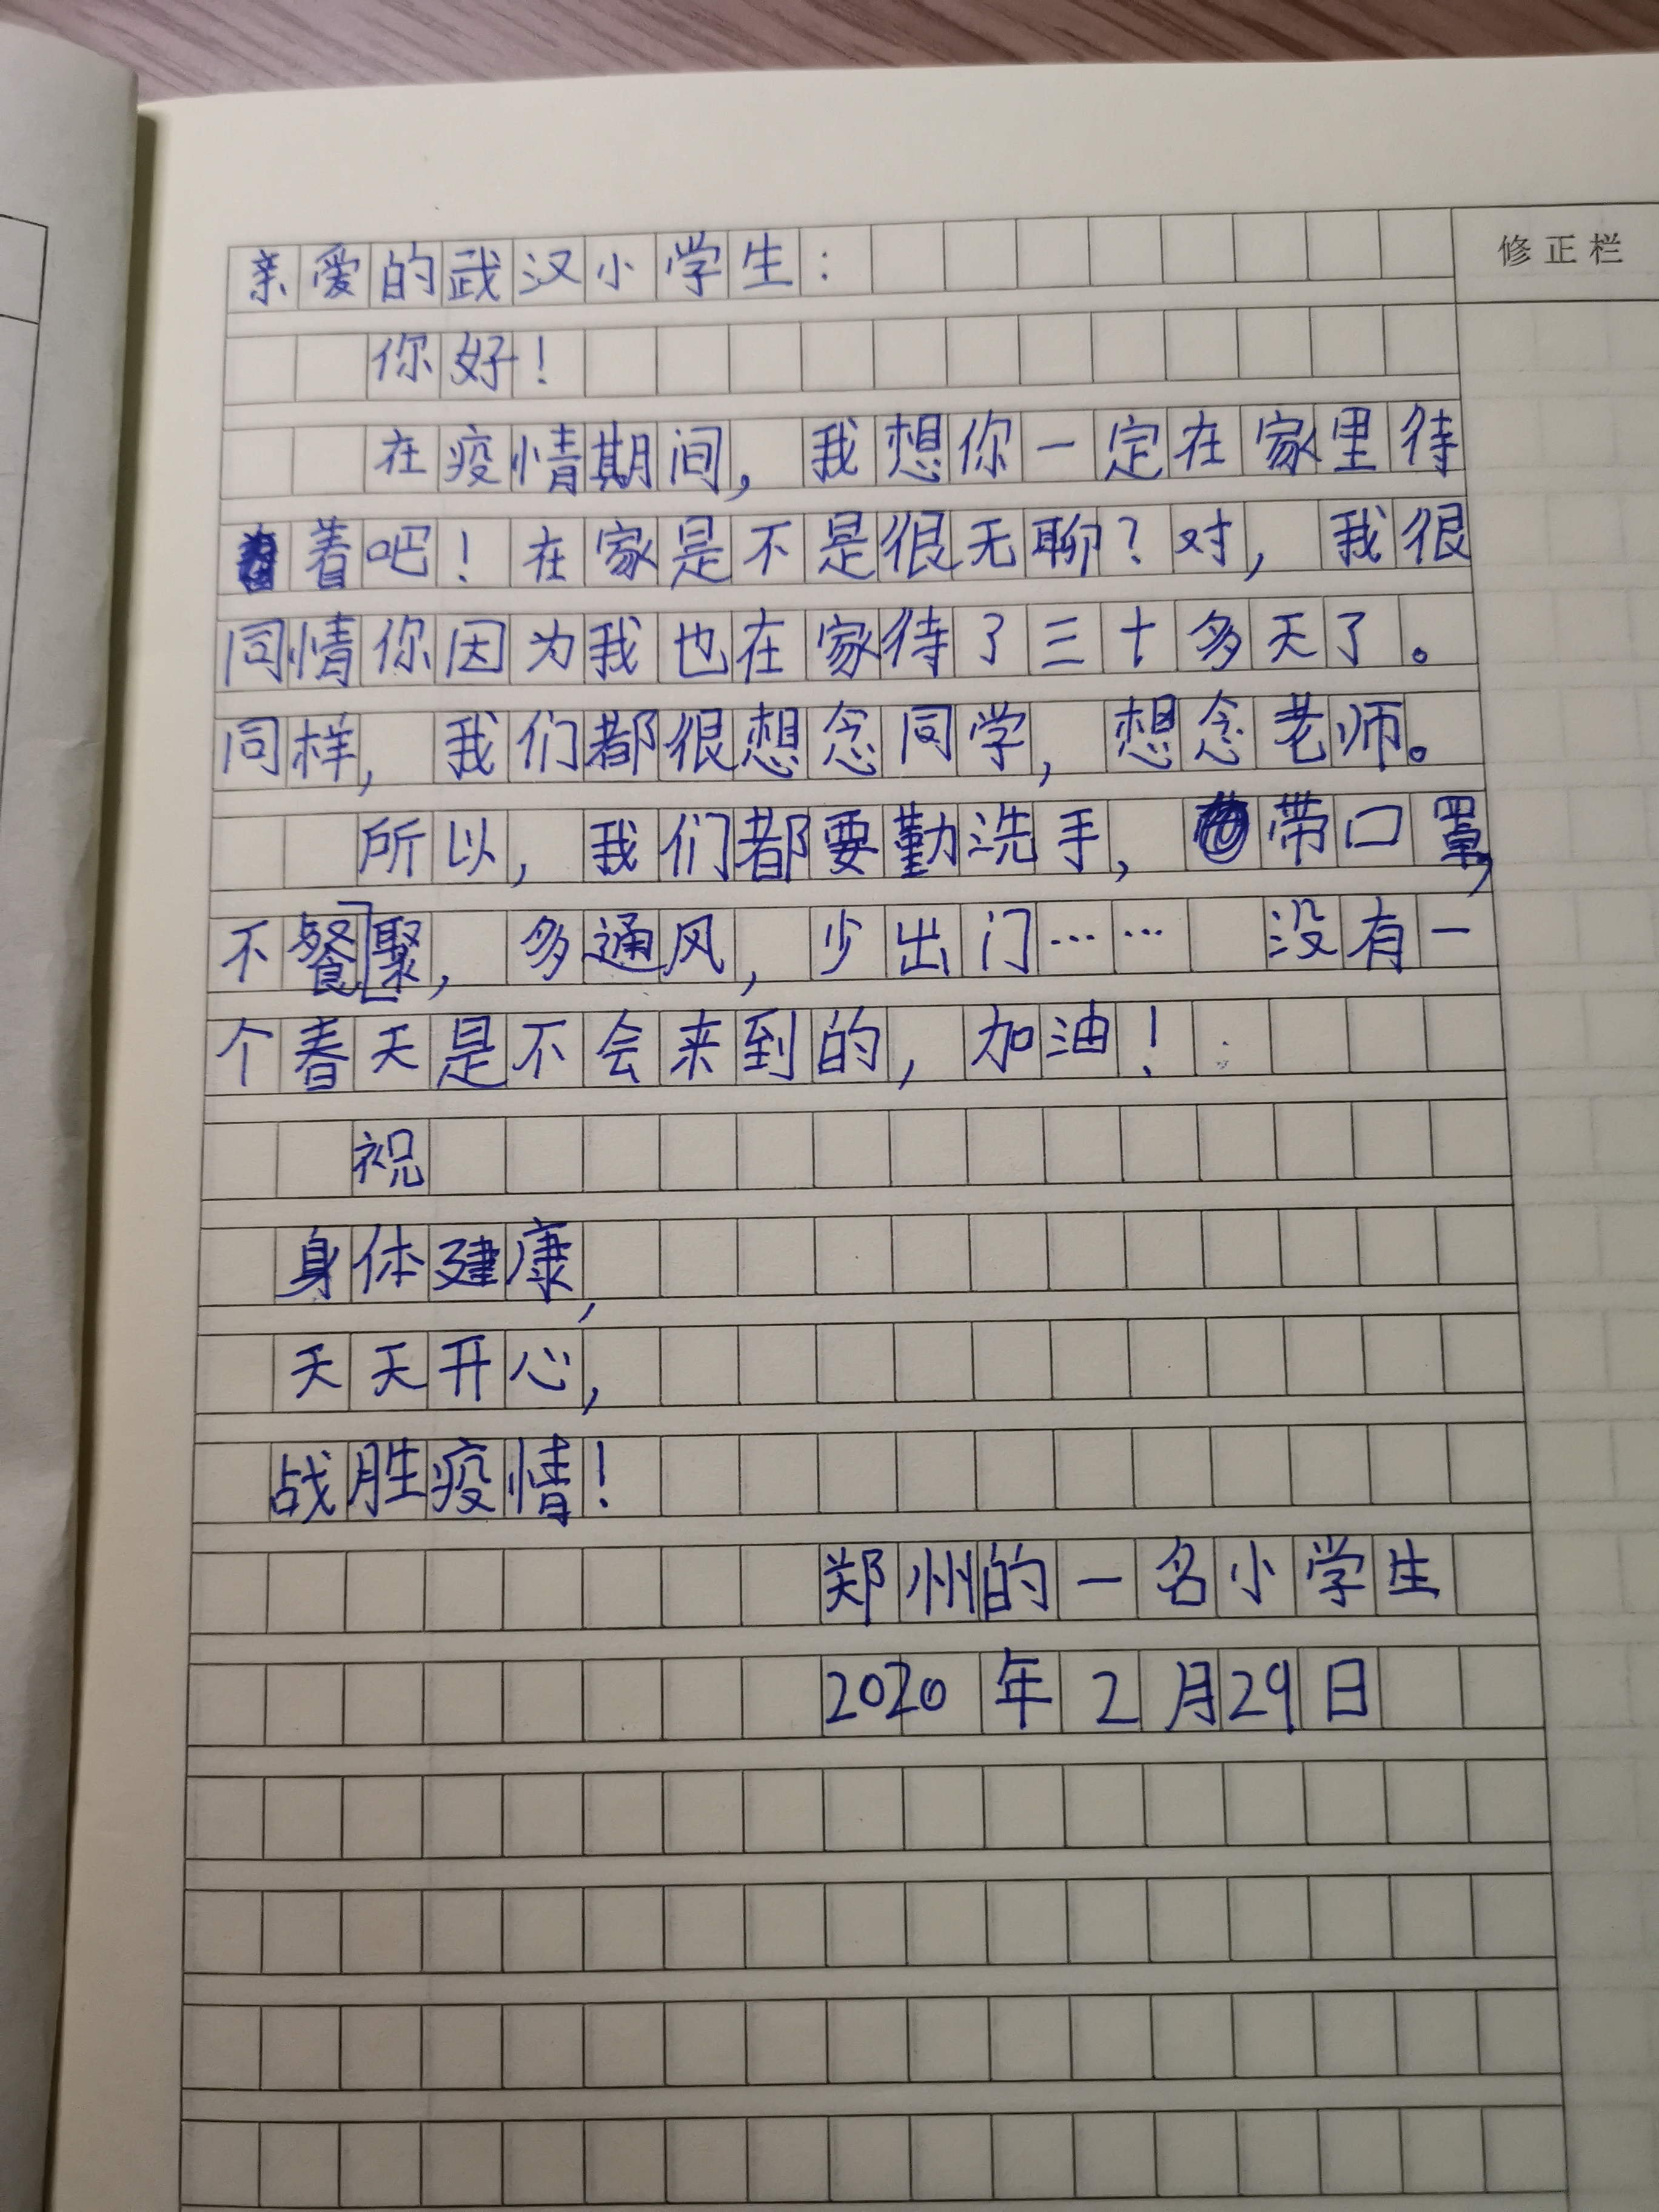 修正栏
亲爱的武汉小学生：
你好！
在疫情期间，我想你一定在家里待
着吧！在家是不是很无聊？对，我很
同情你因为我也在家待了三十多天了。
同样，我们都很想念同学，想念老师。
所以，我们都要勤洗手，带口罩，
不餐聚，多通风，少出门……没有一
个春天是不会来到的，加油！
祝
身体建康，
天天开心，
战胜疫情！
郑州的一名小学生
2020年2月29日